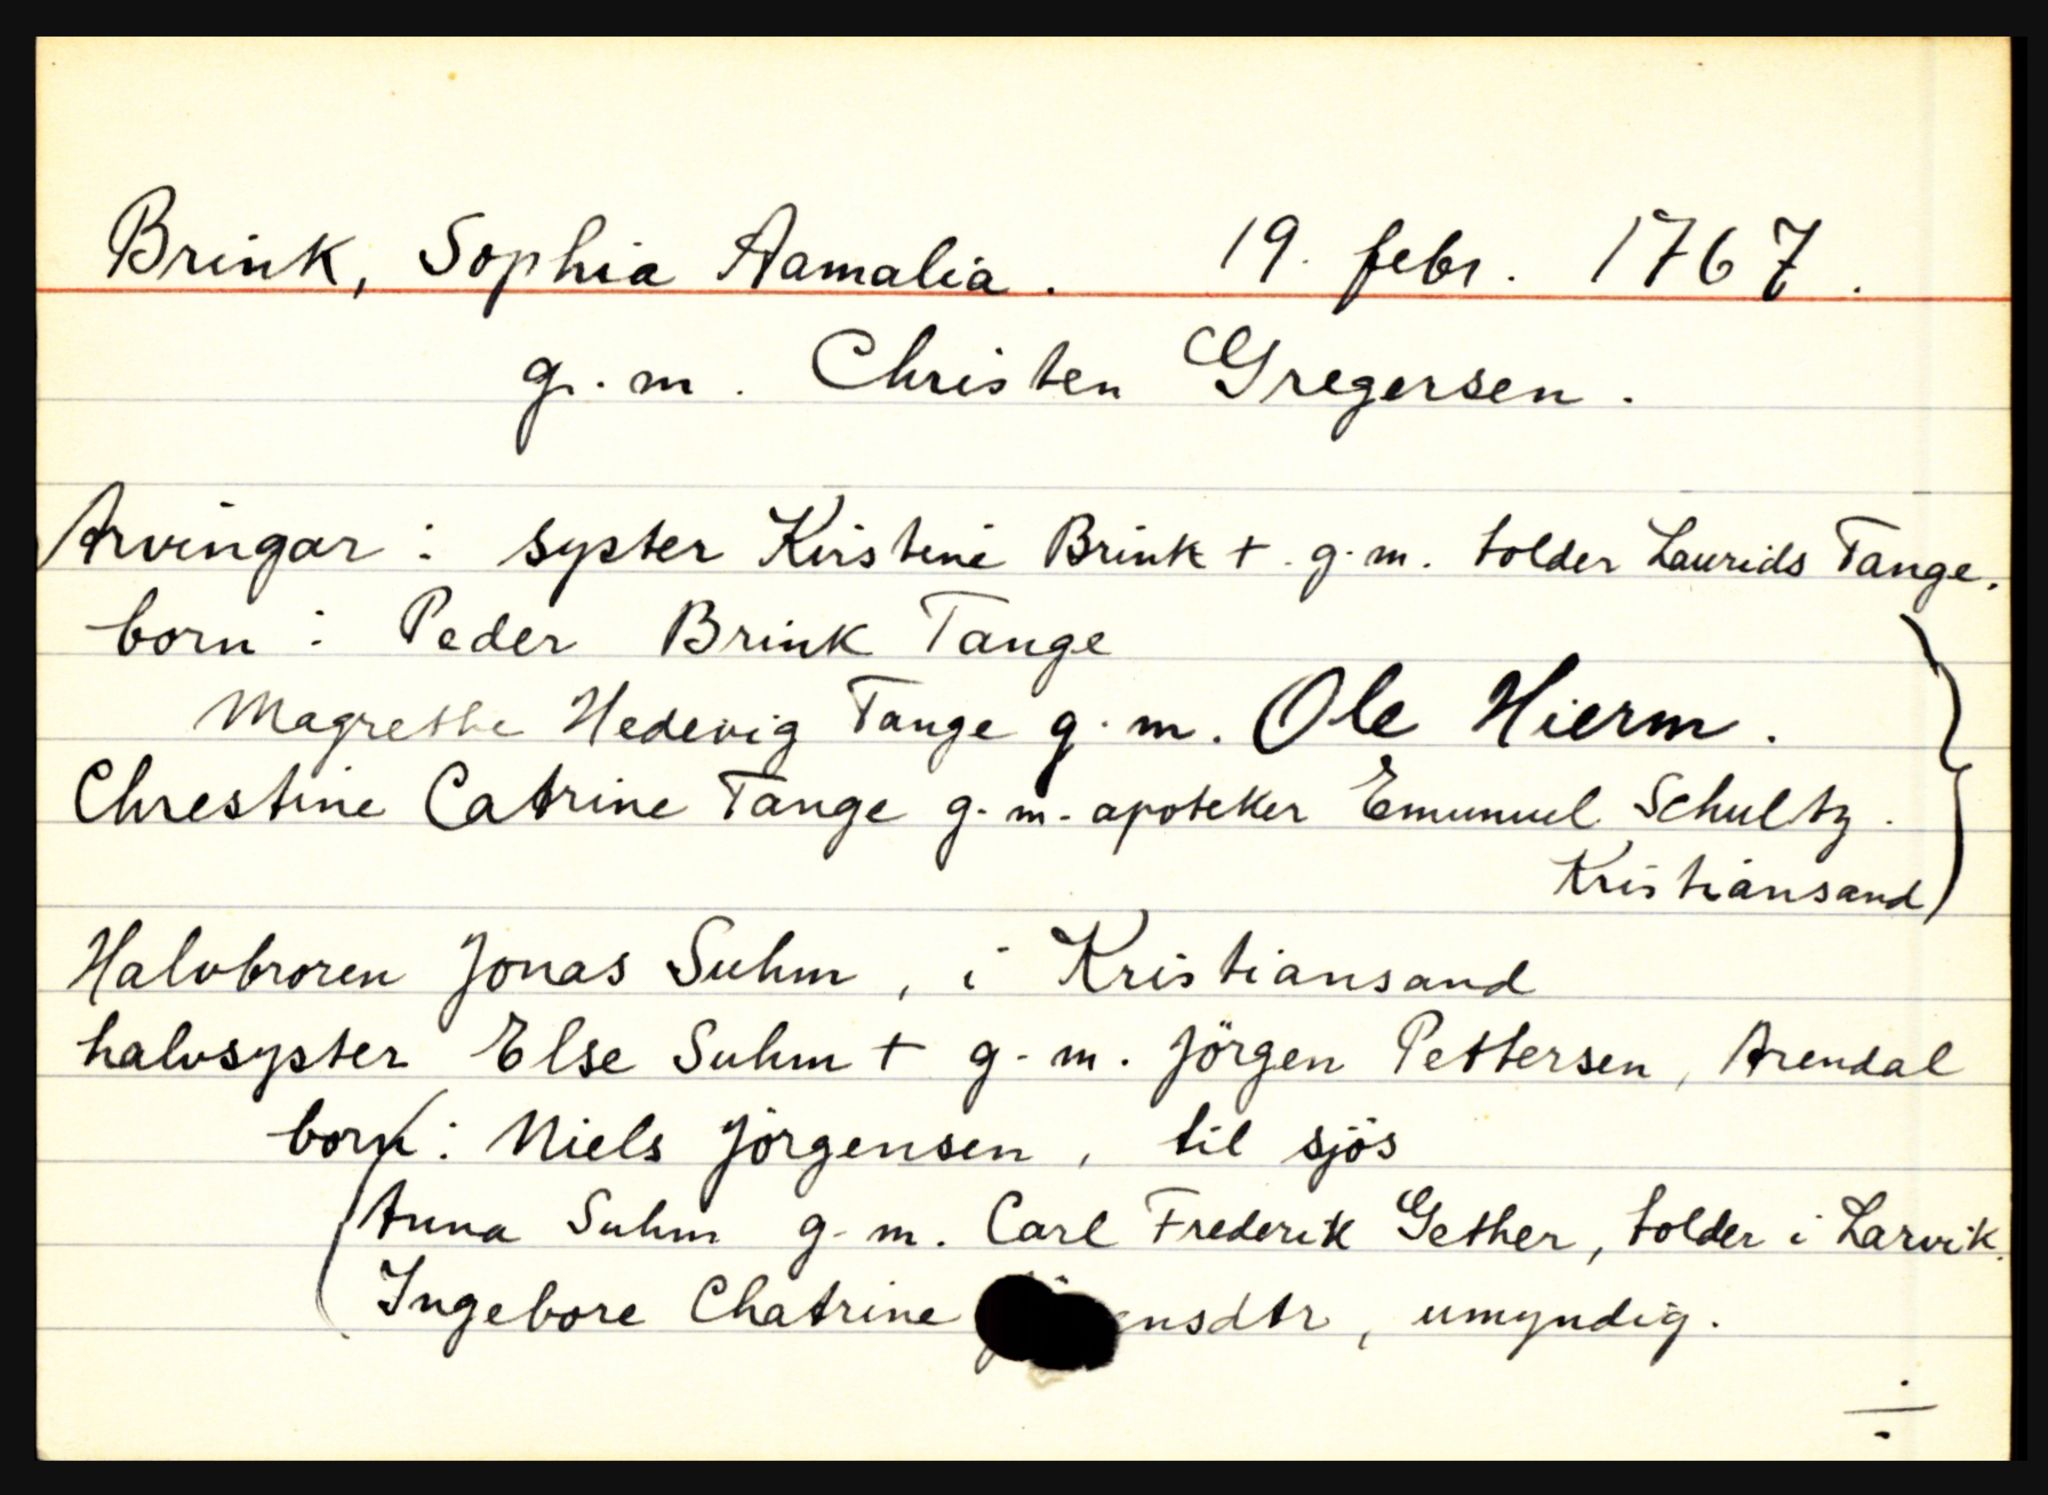 Brink, Sophia Aamalia. 19. febr. 1767.
g.m. Christen Gregersen.
Arvingar: syster Kirstine Brink + g.m. tolder Laurids Tange.
born: Peder Brink Tange
Magrethe Hedevig Tange g.m. Ole Hierm.
Chrestine Catrine Tange g.m. apoteker Emunuel Schultz.
Kristiansand
Halvbroren Jonas Suhm, i Kristiansand
halvsyster Else Suhm + g.m. Jörgen Pettersen, Arendal
born: Niels Jörgensen, til sjös
Anna Suhm g.m. Carl Frederik Gether, tolder i Larvik.
Ingebore Chatrine ensdtr, umyndig.
÷